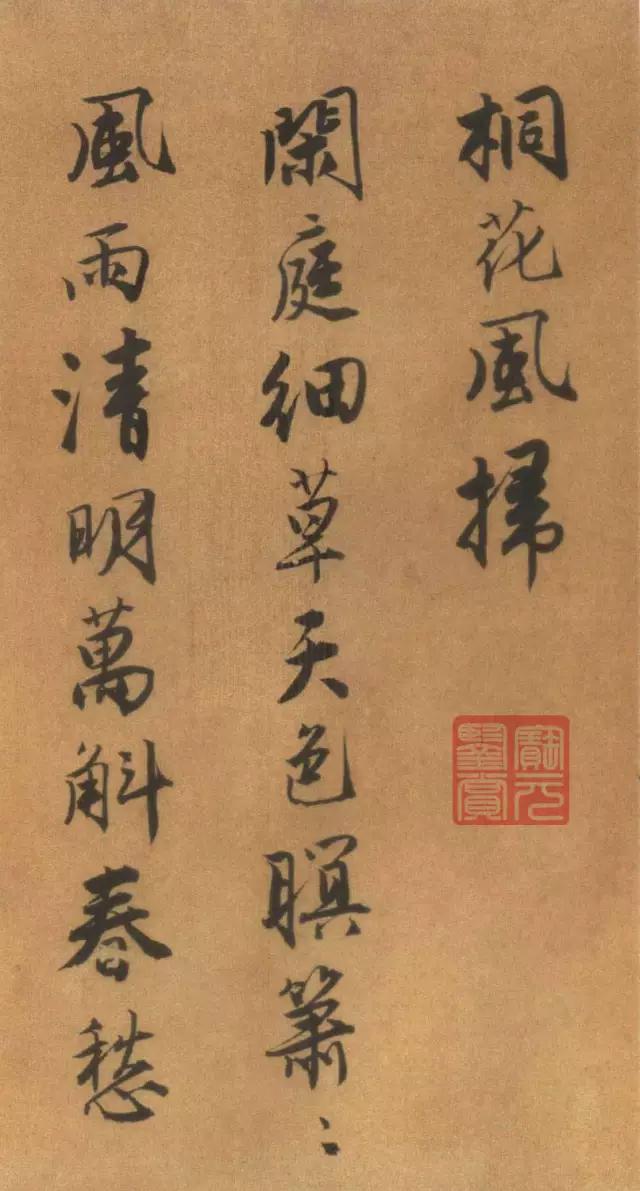 桐花風掃
閑庭細草天色暝簫〻
風雨清明萬斛春愁
寶元
鑒賞